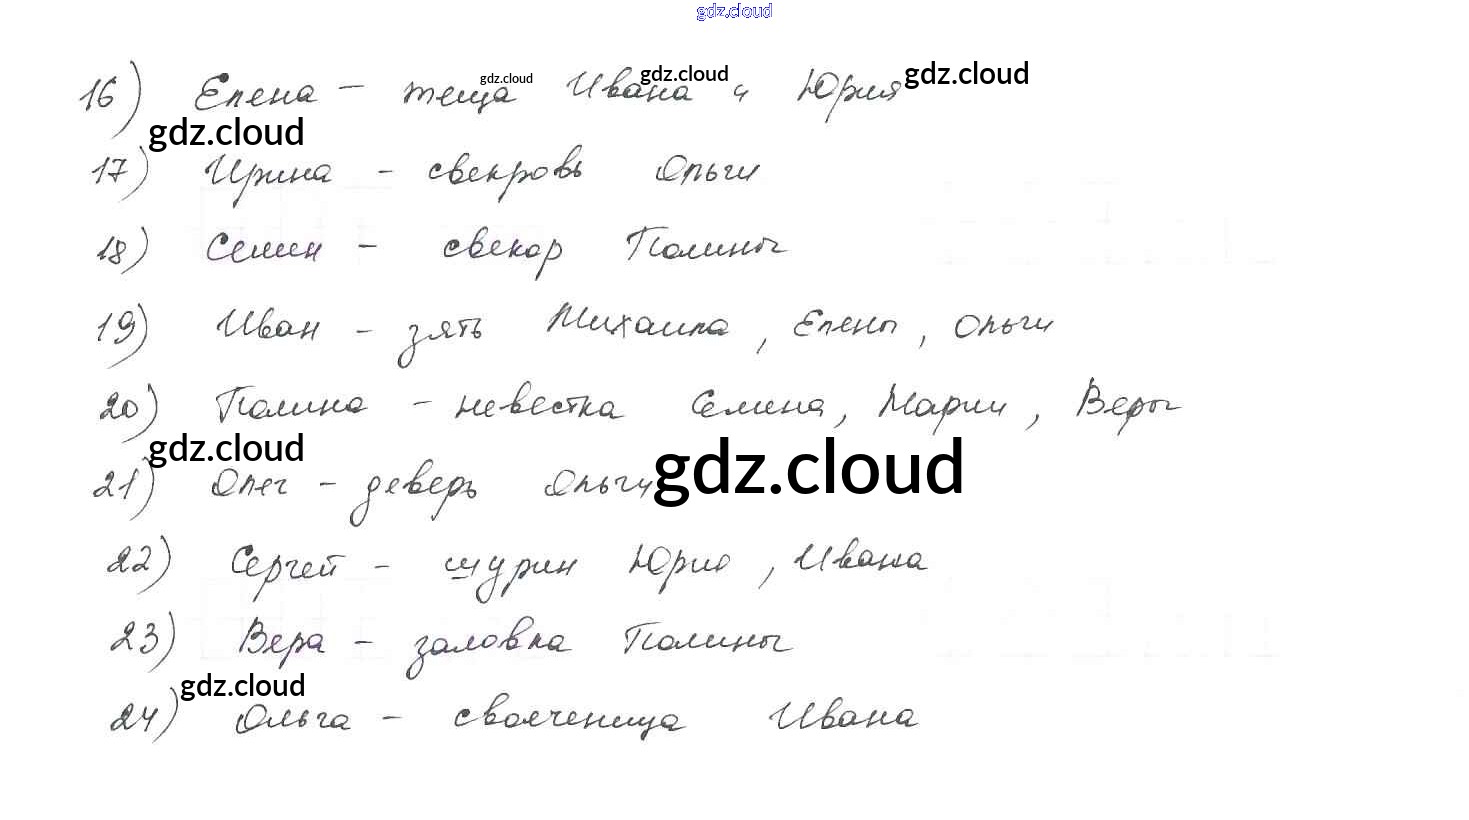 gdz.cloud
16) Елена – теща Ивана и Юрия
gdz.cloud gdz.cloud gdz.cloud
gdz.cloud
17) Ирина – свекровь Ольги
18) Семен – свекор Полины
19) Иван – зять Михаила, Елены, Ольги
20) Полина – невестка Семена, Марии, Веры
gdz.cloud gdz.cloud
21) Олег – деверь Ольги
22) Сергей – шурин Юрия, Ивана
23) Вера – золовка Полины
gdz.cloud
24) Ольга – свояченица Ивана